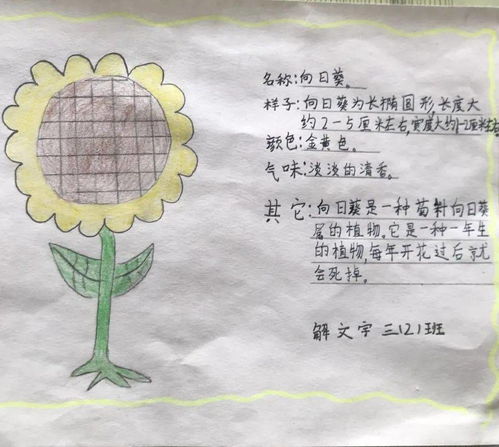 名称:向日葵。
样子:向日葵为长椭圆形长度大
约2-5厘米左右,宽度大约1-2厘米左右
颜色:金黄色。
气味:淡淡的清香。
其它:向日葵是一种菊科向日葵
属的植物,它是一种一年生
的植物,每年开花过后就
会死掉。
解文宇 三(2)班